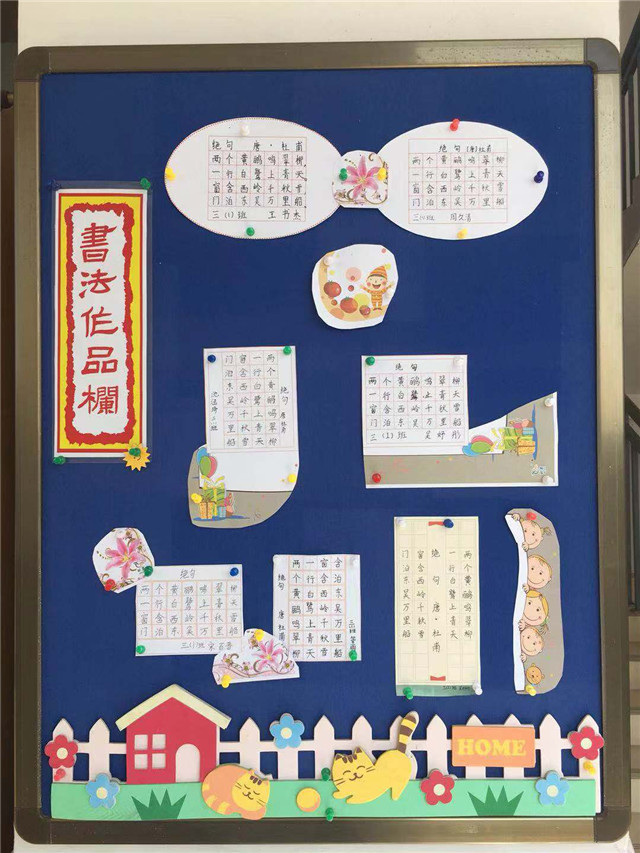 書法作品欄
绝句 唐·杜甫
两个黄鹂鸣翠柳
一行白鹭上青天
窗含西岭千秋雪
门泊东吴万里船
三(1)班
绝句 (唐)杜甫
两个黄鹂鸣翠柳
一行白鹭上青天
窗含西岭千秋雪
门泊东吴万里船
三(1)班
绝句 唐 杜甫
两个黄鹂鸣翠柳
一行白鹭上青天
窗含西岭千秋雪
门泊东吴万里船
绝句
两个黄鹂鸣翠柳
一行白鹭上青天
窗含西岭千秋雪
门泊东吴万里船
三(1)班 吴妤彤
绝句
两个黄鹂鸣翠柳
一行白鹭上青天
窗含西岭千秋雪
门泊东吴万里船
三(1)班
绝句 唐 杜甫
两个黄鹂鸣翠柳
一行白鹭上青天
窗含西岭千秋雪
泊东吴万里船
两个黄鹂鸣翠柳
一行白鹭上青天
绝句 唐·杜甫
窗含西岭千秋雪
门泊东吴万里船
HOME